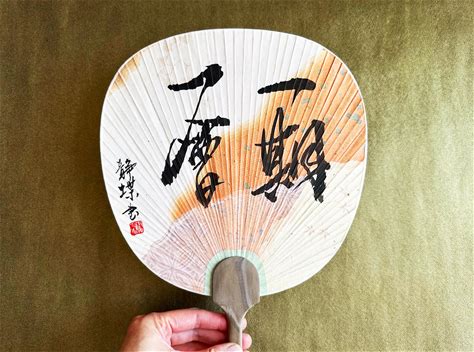 一期
一會
静蝶書